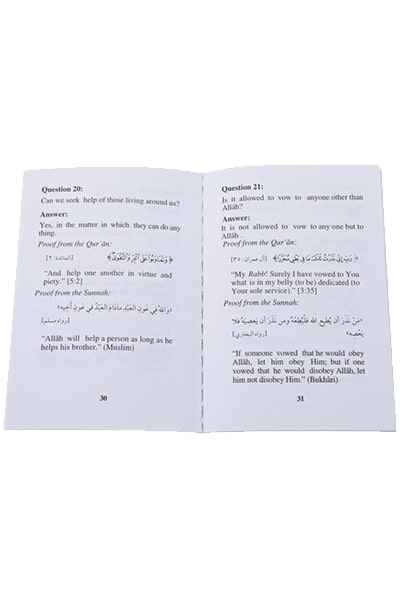 Question 20:
Can we seek help of those living around us?
Answer:
Yes, in the matter in which they can do any
thing.
Proof from the Qur'ân:
﴿ وَتَعَاوَنُوا عَلَى الْبِرِّ وَالتَّقْوَى ﴾ [المائدة: ٢]
"And help one another in virtue and
piety." [5:2]
Proof from the Sunnah:
«وَاللهُ فِي عَوْنِ الْعَبْدِ مَادَامَ الْعَبْدُ فِي عَوْنِ أَخِيهِ»
[رواه مسلم]
"Allâh will help a person as long as he
helps his brother." (Muslim)
30
Question 21:
Is it allowed to vow to anyone other than
Allâh?
Answer:
It is not allowed to vow to anyone but to
Allâh
Proof from the Qur'ân:
﴿ رَبِّ إِنِّي نَذَرْتُ لَكَ مَا فِي بَطْنِي مُحَرَّرًا ﴾ [آل عمران: ٣٥]
"My Rabb! Surely I have vowed to You
what is in my belly (to be) dedicated (to
Your sole service)." [3:35]
Proof from the Sunnah:
«مَنْ نَذَرَ أَنْ يُطِيعَ اللهَ فَلْيُطِعْهُ وَمَنْ نَذَرَ أَنْ يَعْصِيَهُ فَلَا
يَعْصِهِ» [رواه البخاري]
"If someone vowed that he would obey
Allâh, let him obey Him; but if one
vowed that he would disobey Allâh, let
him not disobey Him." (Bukhâri)
31